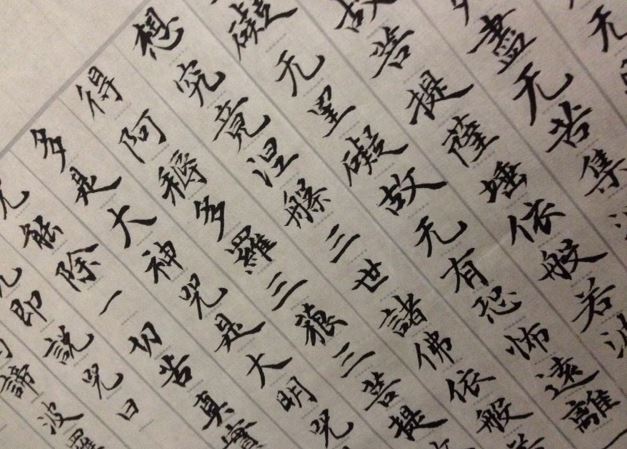 无
盡无苦集
故菩提薩埵依般若波
礙无罣礙故无有恐怖遠離
想究竟涅槃三世諸佛依般
得阿耨多羅三藐三菩提
多是大神咒是大明咒
咒能除一切苦真實
即說咒曰
諦波羅